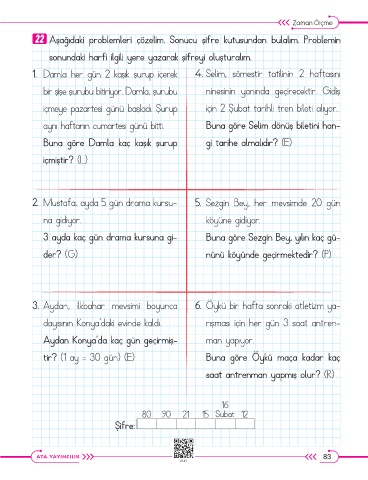 Zaman Ölçme
22 Aşağıdaki problemleri çözelim. Sonucu şifre kutusundan bulalım. Problemin
sonundaki harfi ilgili yere yazarak şifreyi oluşturalım.
1. Damla her gün 2 kaşık şurup içerek
bir şişe şurubu bitiriyor. Damla, şurubu
içmeye pazartesi günü başladı. Şurup
aynı haftanın cumartesi günü bitti.
Buna göre Damla kaç kaşık şurup
içmiştir? (L)
2. Mustafa, ayda 5 gün drama kursu-
na gidiyor.
3 ayda kaç gün drama kursuna gi-
der? (G)
3. Aydan, ilkbahar mevsimi boyunca
dayısının Konya'daki evinde kaldı.
Aydan Konya'da kaç gün geçirmiş-
tir? (1 ay = 30 gün) (E)
4. Selim, sömestir tatilinin 2 haftasını
ninesinin yanında geçirecektir. Gidiş
için 2 Şubat tarihli tren bileti alıyor.
Buna göre Selim dönüş biletini han-
gi tarihe almalıdır? (E)
5. Sezgin Bey, her mevsimde 20 gün
köyüne gidiyor.
Buna göre Sezgin Bey, yılın kaç gü-
nünü köyünde geçirmektedir? (P)
6. Öykü bir hafta sonraki atletizm ya-
rışması için her gün 3 saat antren-
man yapıyor.
Buna göre Öykü maça kadar kaç
saat antrenman yapmış olur? (R)
16
80 90 21 15 Şubat 12
Şifre:
ATA YAYINCILIK
83